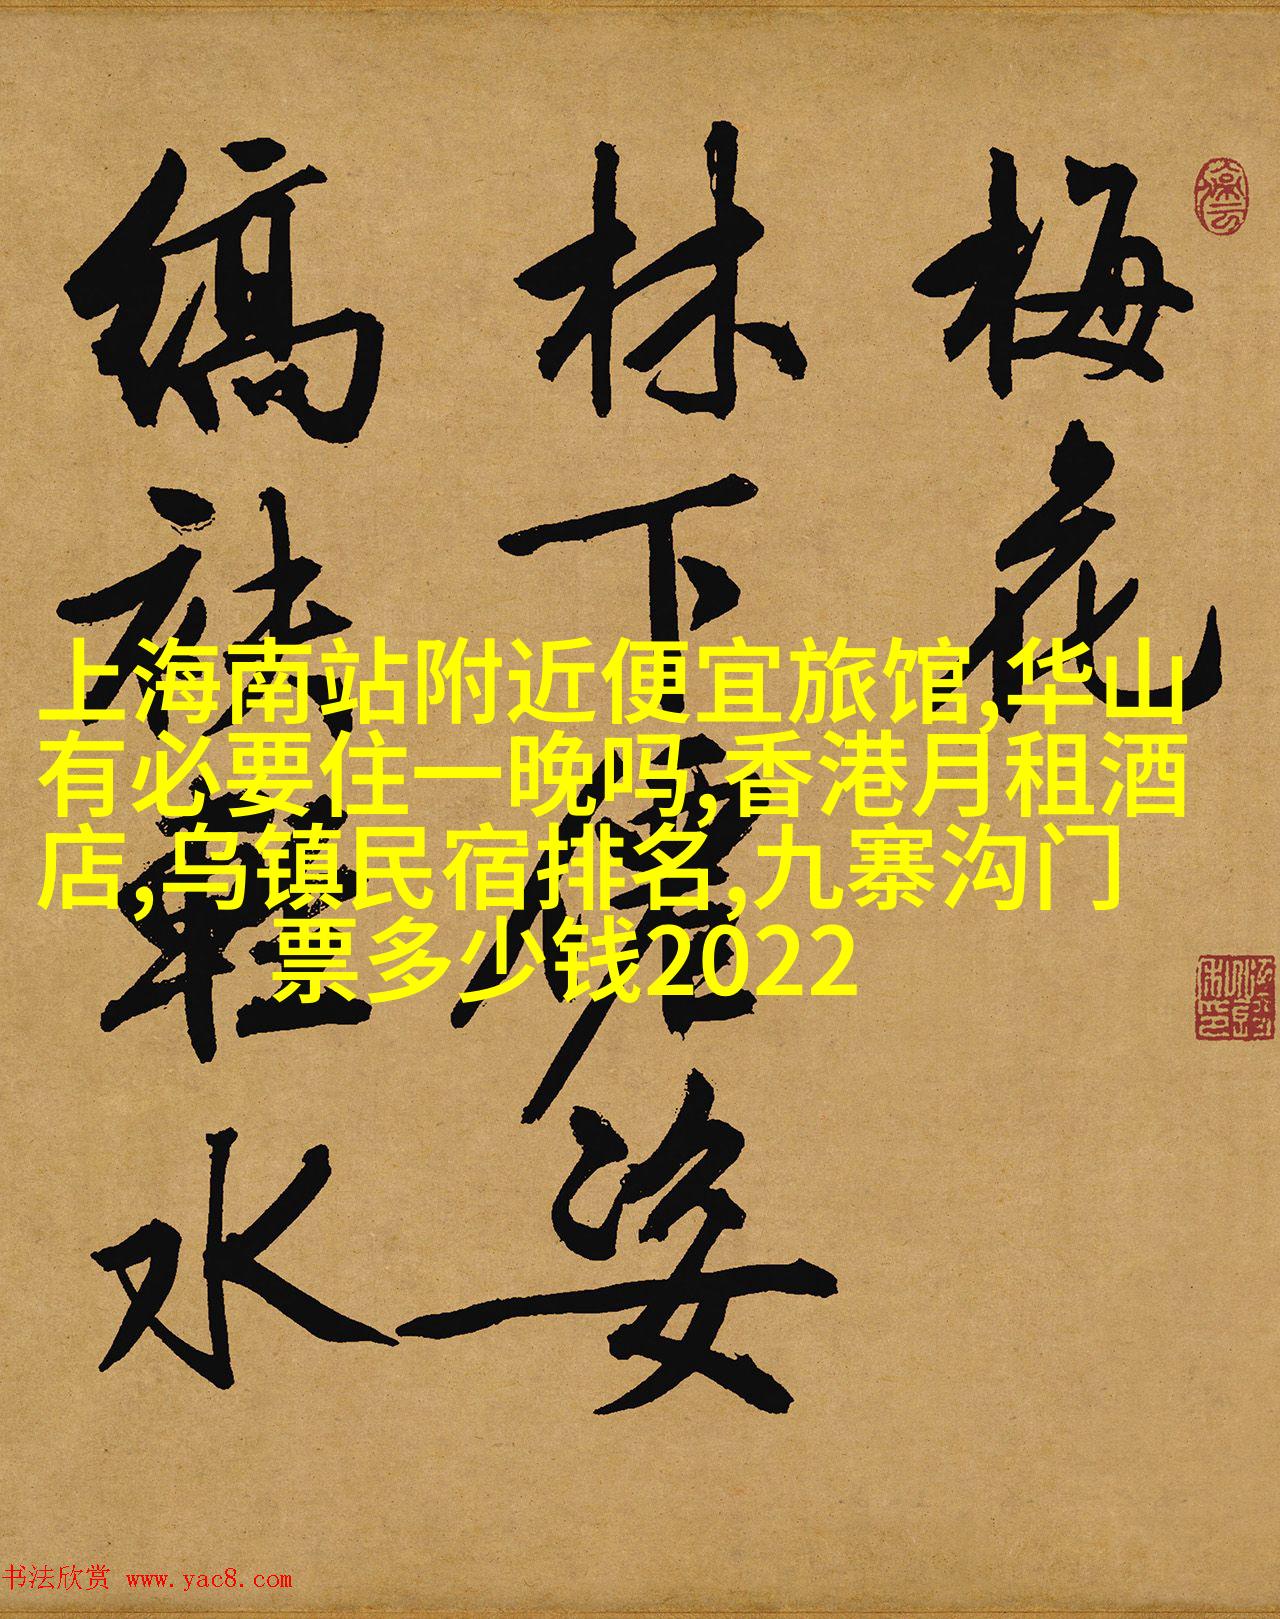 梅花
林下僊姿
縞袂輕水
上海南站附近便宜旅馆,华山
有必要住一晚吗,香港月租酒
店,乌镇民宿排名,九寨沟门
票多少钱2022
书法欣赏 www.yac8.com